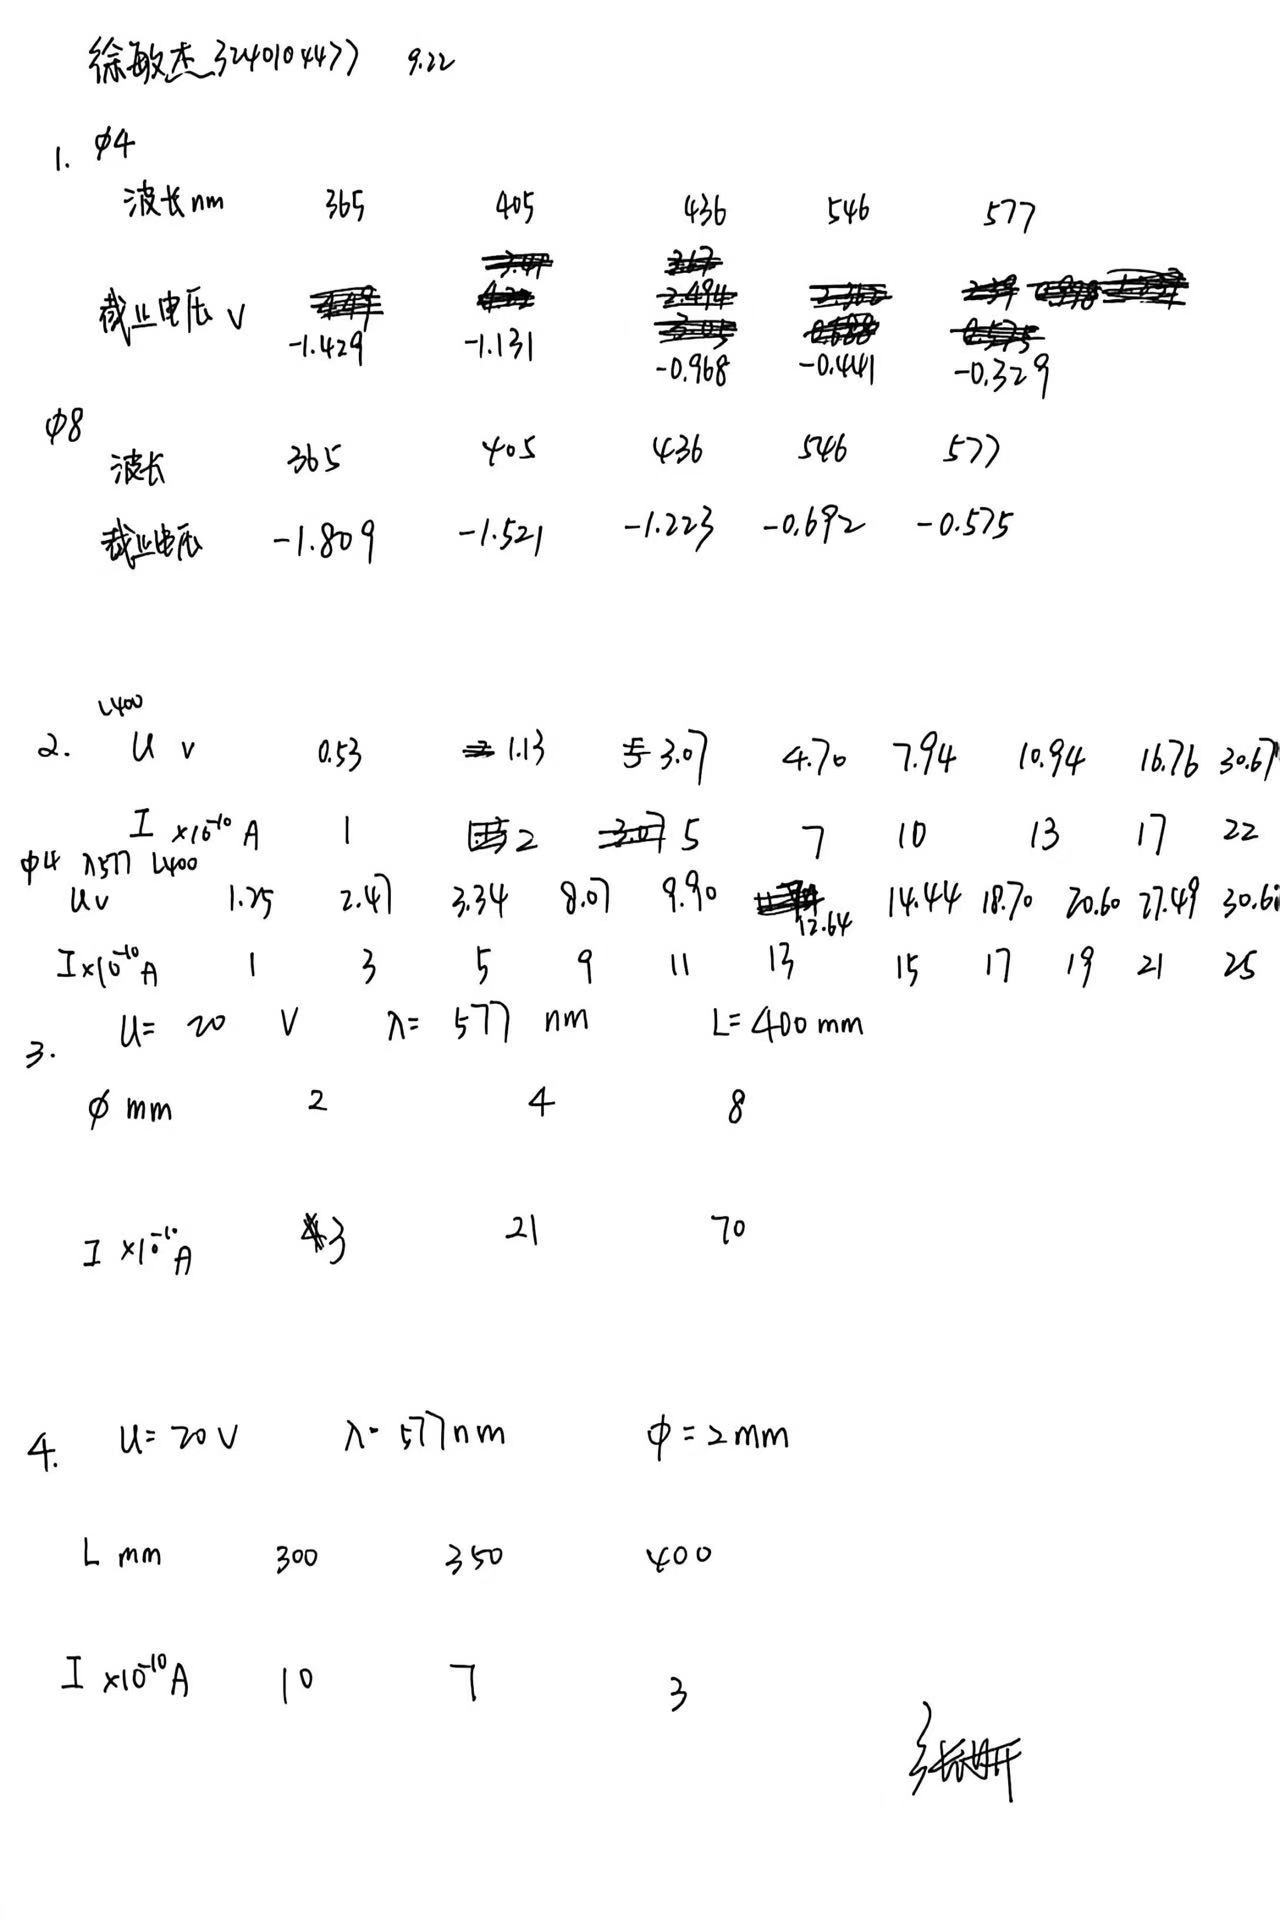 徐敏杰 3240104477 9.22
1. φ4
波长nm 365 405 436 546 577
截止电压 V -1.429 -1.131 -0.968 -0.441 -0.329
φ8
波长 365 405 436 546 577
截止电压 -1.809 -1.521 -1.223 -0.692 -0.575
L400
2. U V 0.53 1.13 3.07 4.70 7.94 10.94 16.76 30.67
I ×10⁻¹⁰ A 1 2 5 7 10 13 17 22
φ4 λ577 L400
U V 1.25 2.47 3.34 8.07 9.90 12.64 14.44 18.70 20.60 27.49
I×10⁻¹⁰A 1 3 5 9 11 13 15 17 19 21 25
3. U= 20 V λ= 577 nm L= 400 mm
φ mm 2 4 8
I ×10⁻¹⁰ A 3 21 70
4. U= 20 V λ= 577nm φ = 2mm
L mm 300 350 400
I ×10⁻¹⁰ A 10 7 3